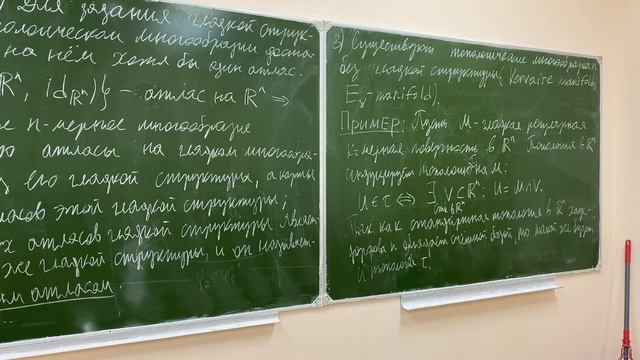 Для задания гладкой струк-
ологическом многообразии доста-
на нём хотя бы один атлас.
ℝⁿ, id_{ℝⁿ})} – атлас на ℝⁿ ⇒
е n-мерное многообразие
атласы на гладком многообра-
его гладкой структуры, а карты
ласов этой гладкой структуры;
х атласов гладкой структуры являет-
же гладкой структуры, и он называет-
ым атласом.
3) Существуют топологические многообразия
без гладкой структуры (Kervaire manifold,
E₈-manifold).
Пример: Пусть M – гладкая регулярная
k-мерная поверхность в ℝⁿ. Топология в ℝⁿ
индуцирует топологию на M:
U ∈ τ ⇔ ∃ V ⊂ ℝⁿ: U = M ∩ V.
Так как стандартная топология в ℝⁿ хаус-
дорфова и обладает счётной базой, то такой же будет
и топология τ.